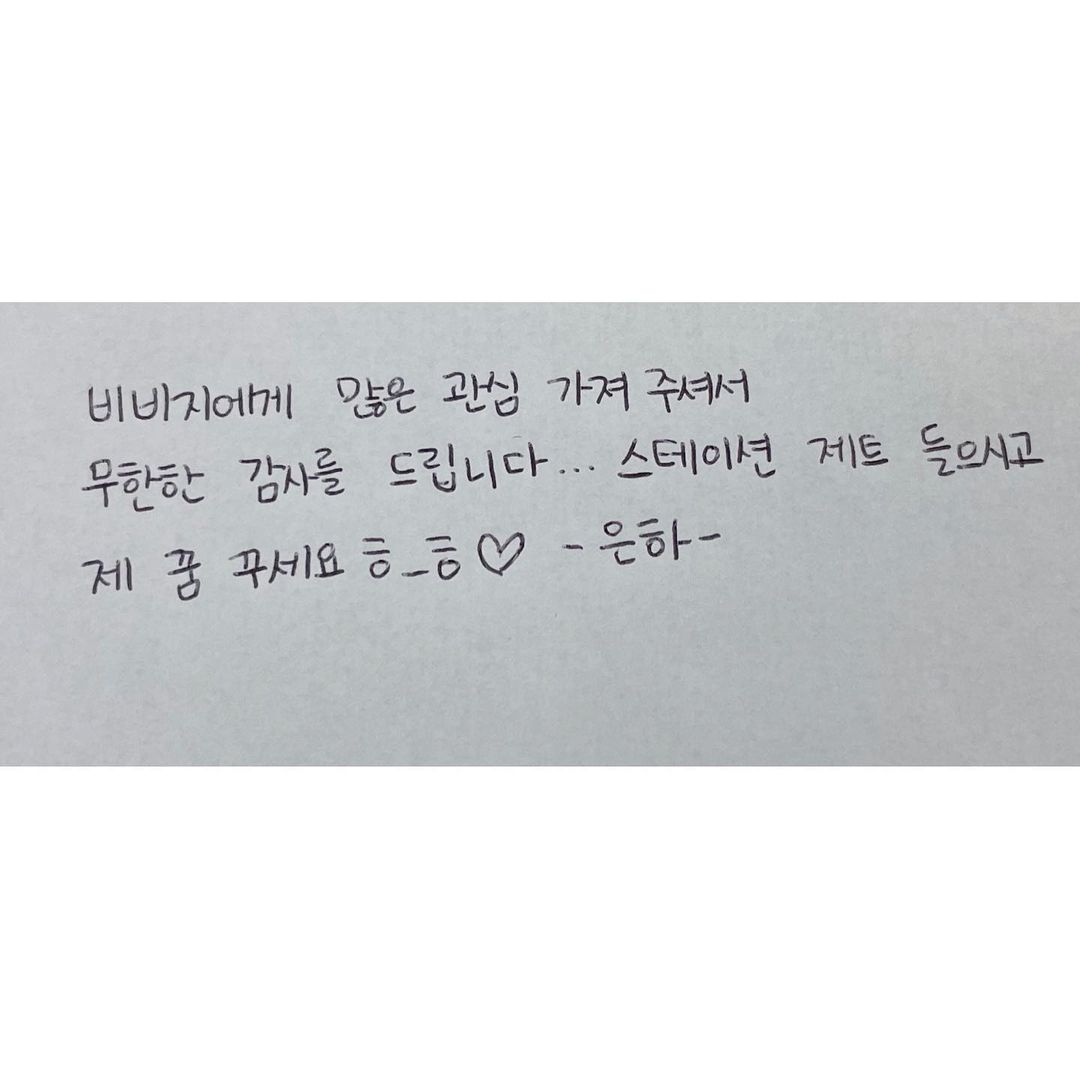 비비지에게 많은 관심 가져 주셔서
무한한 감사를 드립니다... 스테이션 제트 들으시고
제 꿈 꾸세요 ㅎ_ㅎ♡ -은하-